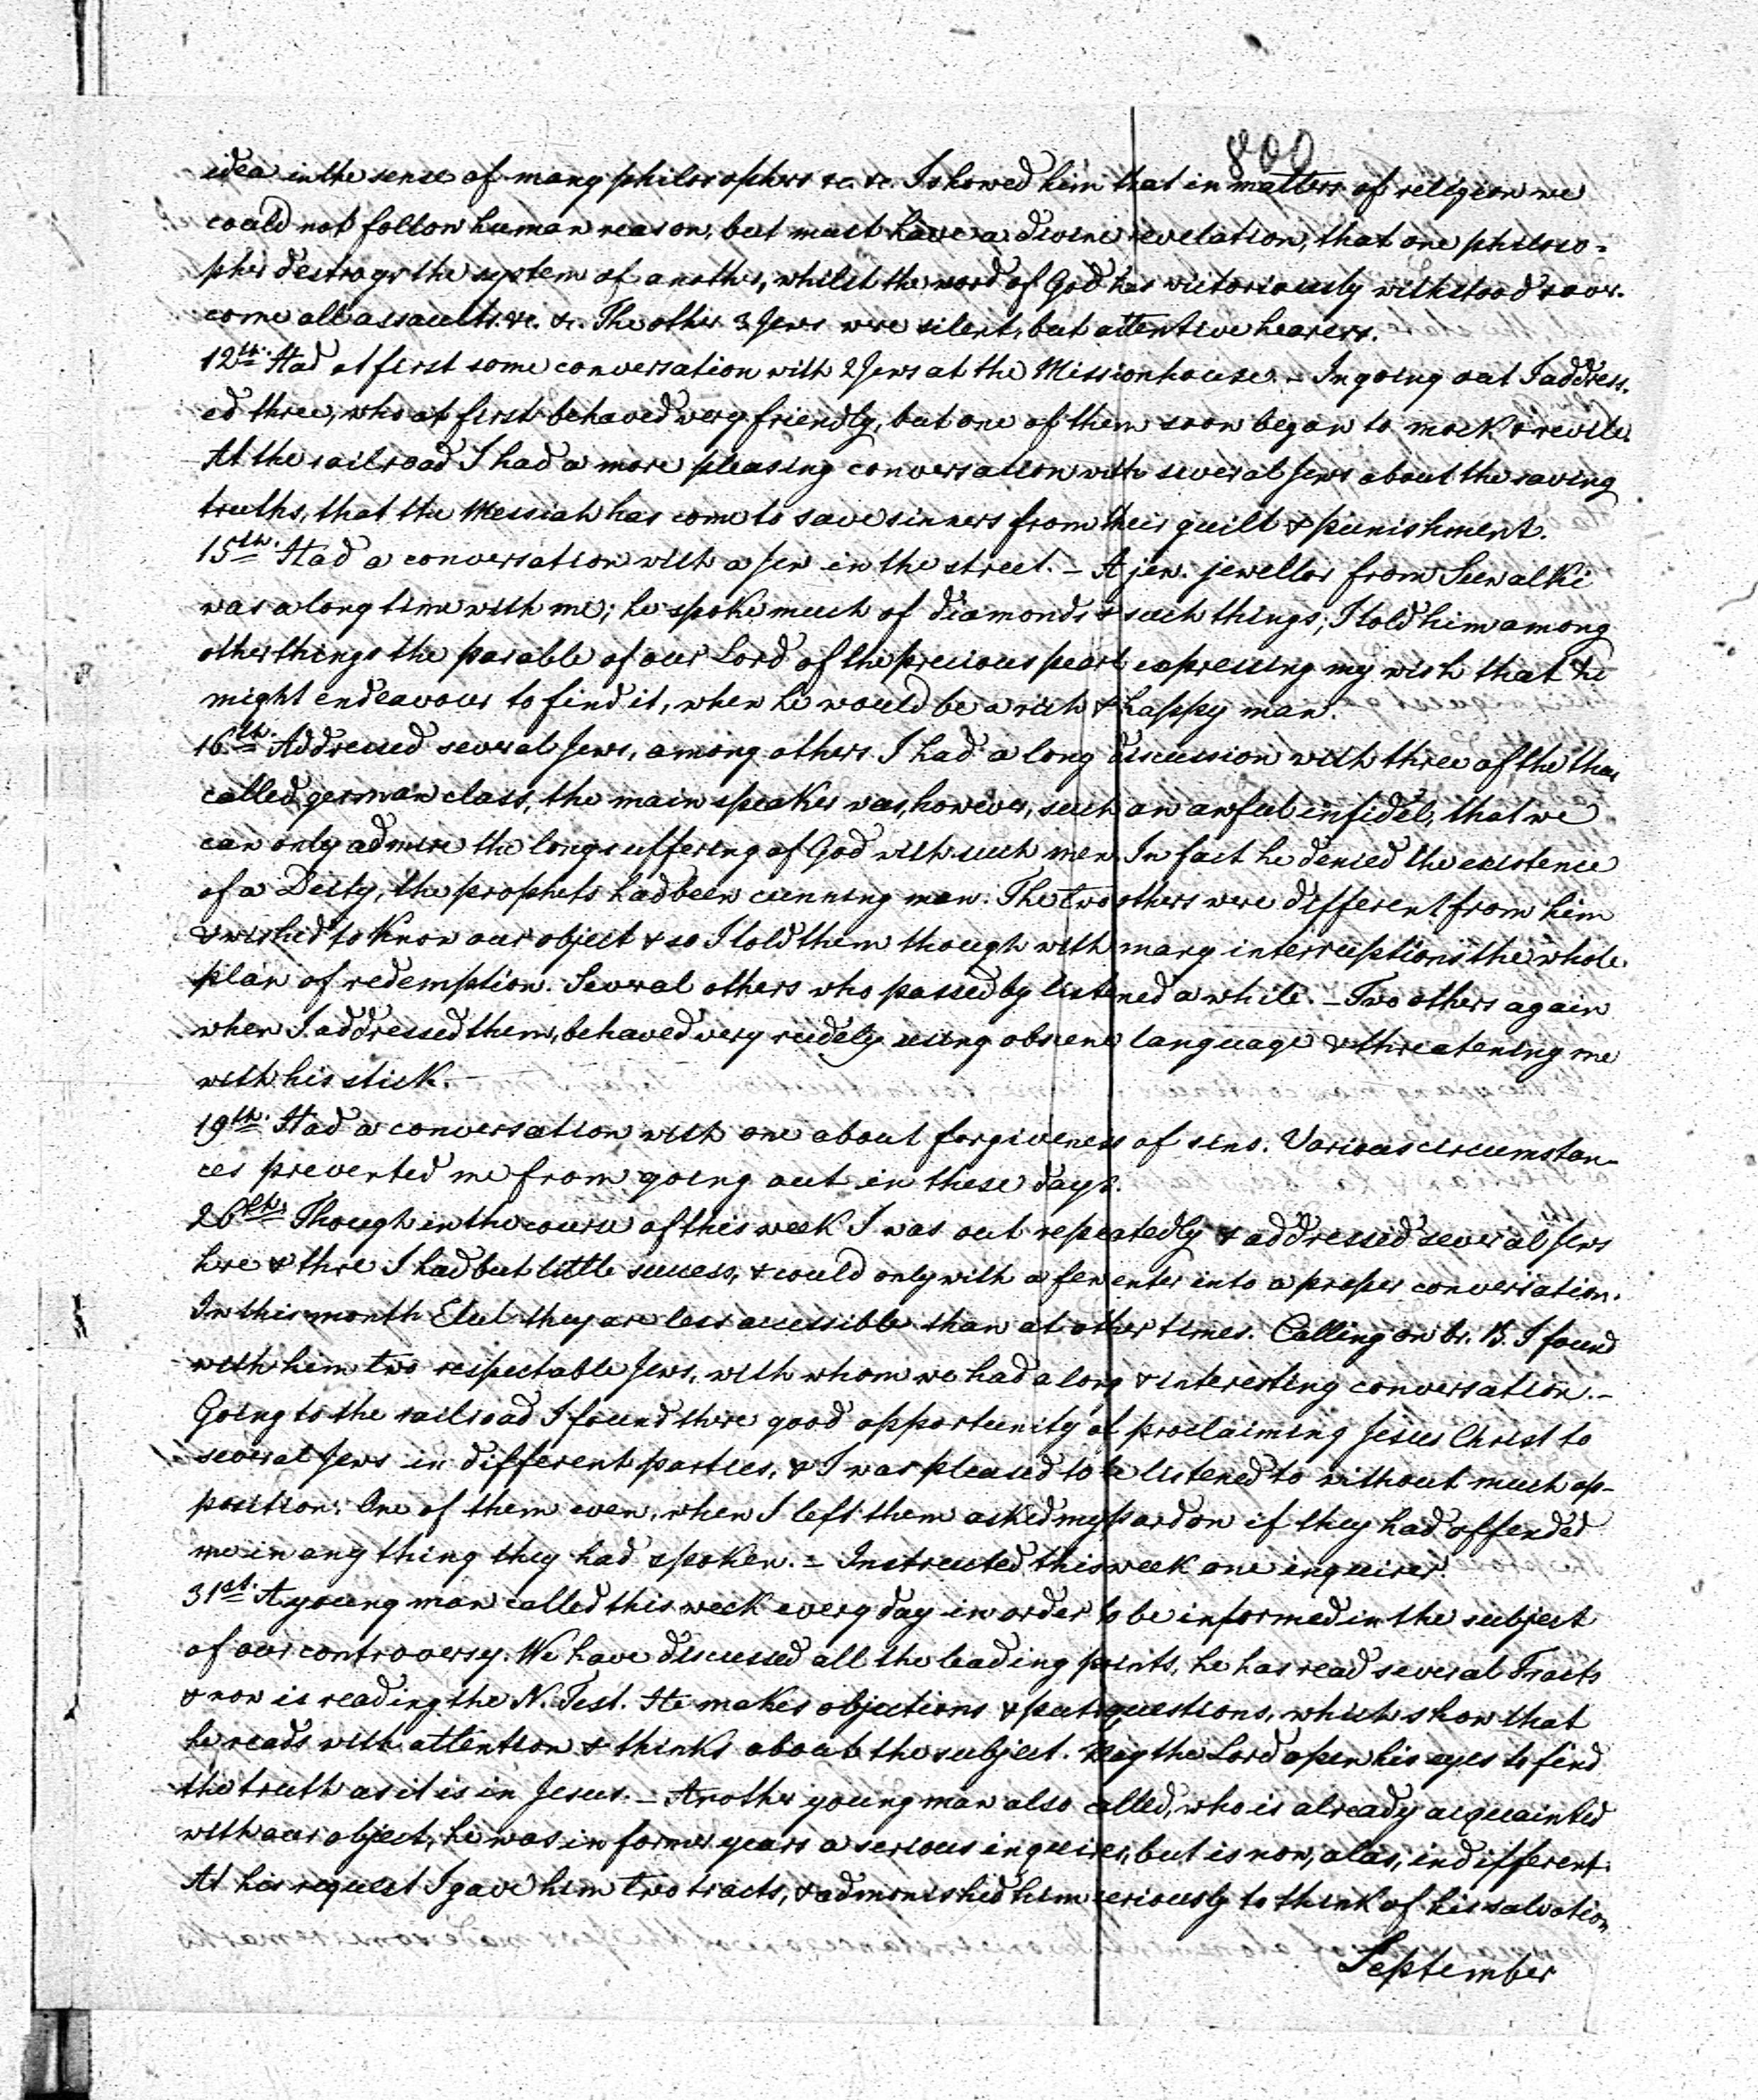 800
idea in the sense of many philosophers &c. &c. I showed him that in matters of religion we
could not follow human reason, but must have a divine revelation, that one philoso=
pher destroys the system of another, whilst the word of God has victoriously withstood & over.
come all assaults. &c. &c. The other 3 Jews were silent, but attentive hearers.
12th. Had at first some conversation with 2 Jews at the Missionhouse. – In going out I address.
ed three, who at first behaved very friendly, but one of them soon began to mock & revile.
At the railroad I had a more pleasing conversation with several Jews about the saving
truths, that the Messiah has come to save sinners from their guilt & punishment.
15th. Had a conversation with a Jew in the street. – A jew. jeweller from Suwalki
was a long time with me; he spoke much of diamonds & such things; I told him among
other things the parable of our Lord of the precious pearl expressing my wish that he
might endeavour to find it, when he would be a rich & happy man.
16th. Addressed several Jews, among others I had a long discussion with three of the thus
called german class, the main speaker was, however, such an awful infidel, that we
can only admire the longsuffering of God with such men. In fact he denied the existence
of a Deity, the prophets had been cunning men. The two others were different from him
& wished to know our object & so I told them though with many interruptions the whole
plan of redemption. Several others who passed by listened a while. – Two others again
when I addressed them, behaved very rudely using obscene language & threatening me
with his stick. –
19th. Had a conversation with one about forgiveness of sins. Various circumstan-
ces prevented me from going out in these days.
26th. Though in the course of this week I was out repeatedly & addressed several Jews
here & there I had but little success, & could only with a few enter into a proper conversation.
In this month Elul they are less accessible than at other times. Calling on br. B. I found
with him two respectable Jews, with whom we had a long & interesting conversation. –
Going to the railroad I found there good opportunity of proclaiming Jesus Christ to
several Jews in different parties, & I was pleased to be listened to without much op-
position. One of them even, when I left them asked my pardon if they had offended
me in any thing they had spoken. – Instructed this week one inquirer.
31st. A young man called this week every day in order to be informed in the subject
of our controversy. We have discussed all the leading points, he has read several Tracts
& now is reading the N. Test. He makes objections & puts questions, which show that
he reads with attention & thinks about the subject. May the Lord open his eyes to find
the truth as it is in Jesus. – Another young man also called, who is already acquainted
with our object, he was in former years a serious inquirer, but is now, alas, indifferent.
At his request I gave him two tracts, & admonished him seriously to think of his salvation
September